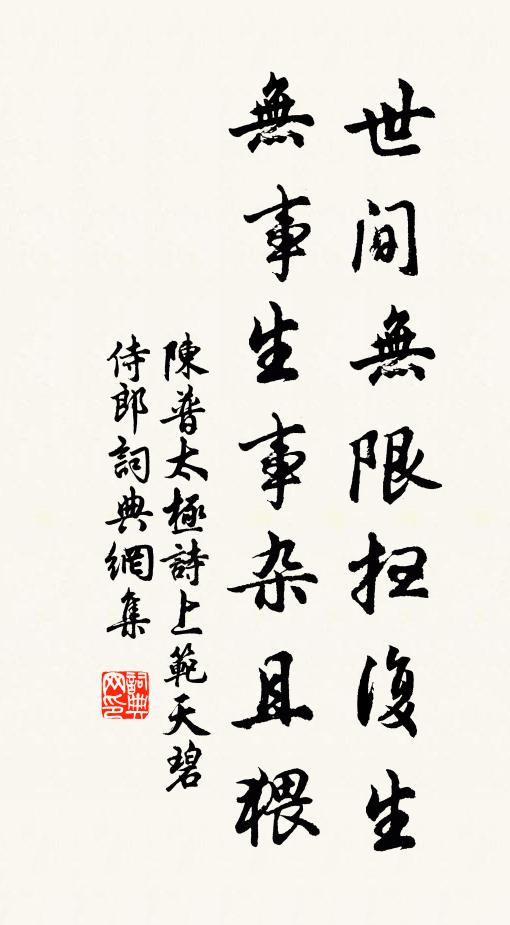 世间無限狂復生
無事生事杂且猥
陳普太極詩上範天碧
侍郎詞典網集
詞典网印